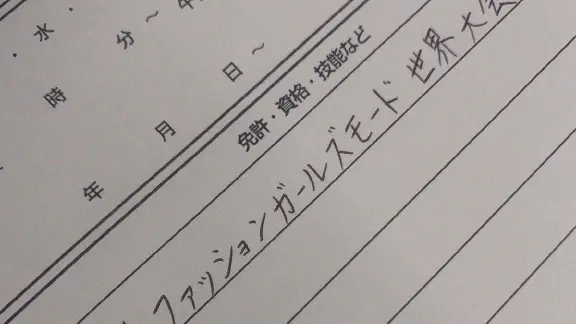 ・水・
分～午
時
日～
月
年
免許・資格・技能など
ファッションガールズモード 世界大会